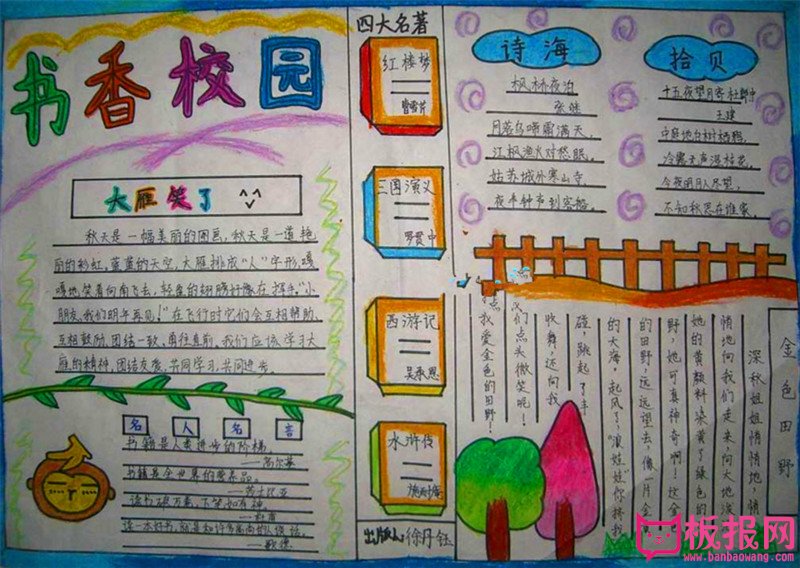 书香校园
大雁笑了
秋天是一幅美丽的图画，秋天是一道艳
丽的彩虹。蓝蓝的天空，大雁排成“人”字形，嘎
嘎地笑着向南飞去，轻盈的翅膀好像在挥手。“小
朋友，我们明年再见！”在飞行时它们会互相帮助，
互相鼓励，团结一致，勇往直前，我们应该学习大
雁的精神，团结友爱，共同学习，共同进步。
名人名言
书籍是人类进步的阶梯。
——高尔基
书籍是全世界的营养品。
——莎士比亚
读书破万卷，下笔如有神。
——杜甫
读一本好书，就是和许多高尚的人谈话。
——歌德
四大名著
红楼梦
曹雪芹
三国演义
罗贯中
西游记
吴承恩
水浒传
施耐庵
出版人：徐丹钰
诗海
枫桥夜泊
张继
月落乌啼霜满天，
江枫渔火对愁眠。
姑苏城外寒山寺，
夜半钟声到客船。
拾贝
十五夜望月寄杜郎中
王建
中庭地白树栖鸦，
冷露无声湿桂花。
今夜明月人尽望，
不知秋思在谁家。
金色田野
深秋姐姐悄悄地，悄
悄地向我们走来向大地泼
她的黄颜料染黄了绿色的
野，她可真神奇啊！这金
的田野，远远望去，像一片金
的大海。起风了，“浪娃娃你挤我
碰，跳起了丰
收舞，还向我
们点头微笑呢！
我爱金色的田野！
板报网
www.banbaowang.com